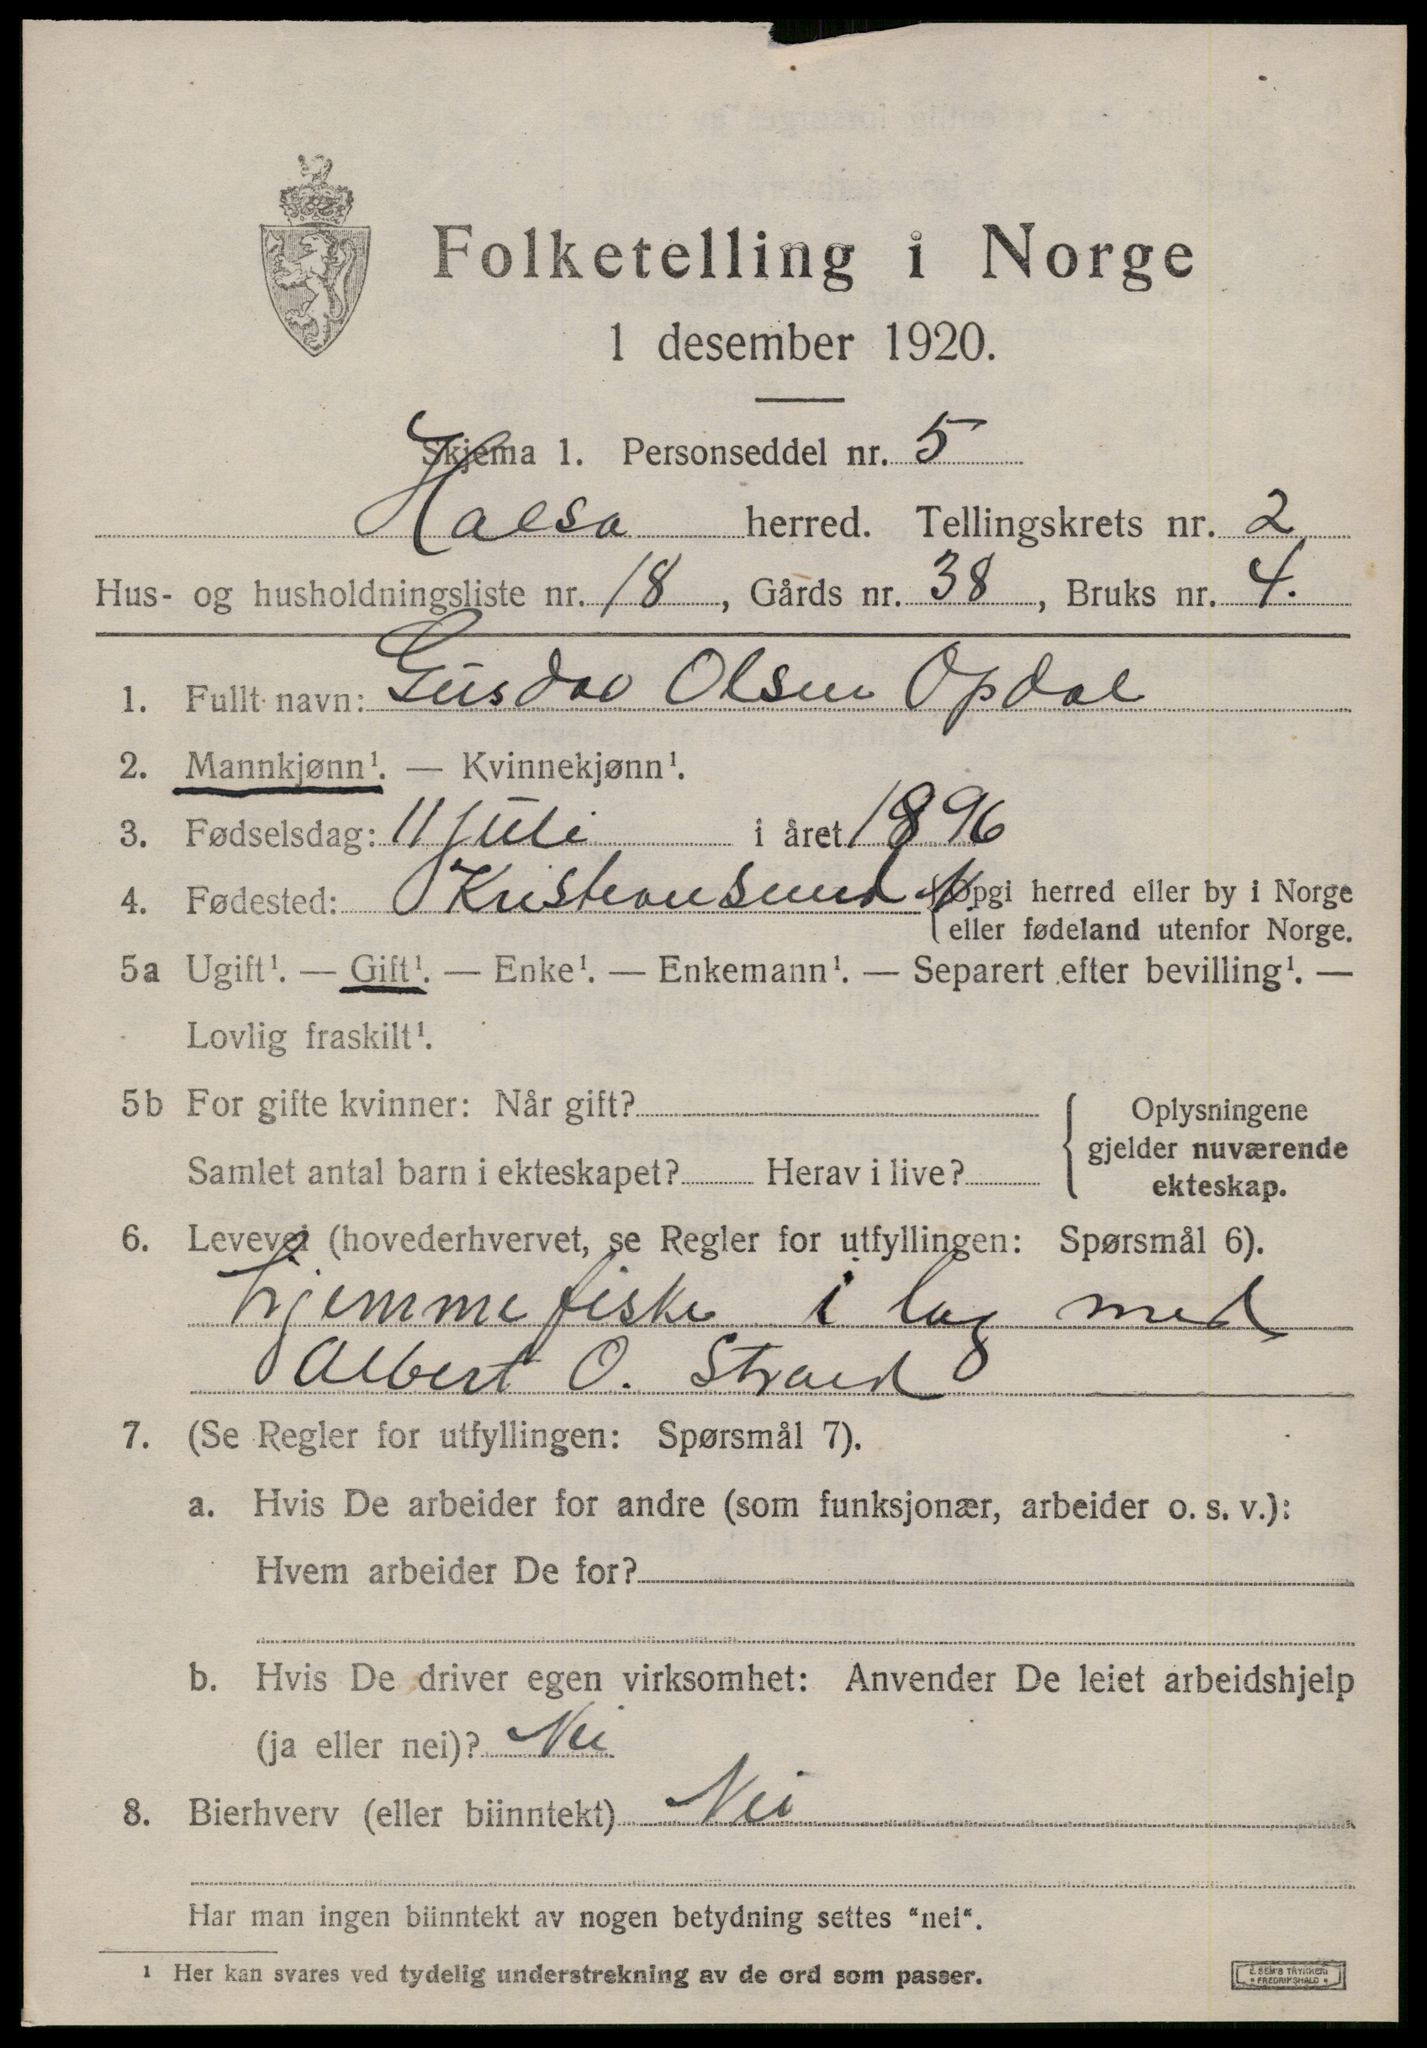 Folketelling i Norge
1 desember 1920.
Skjema 1. Personseddel nr. 5
Halsa herred. Tellingskrets nr. 2
Hus- og husholdningsliste nr. 18, Gårds nr. 38, Bruks nr. 4.
1. Fullt navn: Gusdav Olsen Opdal
2. Mannkjønn¹. — Kvinnekjønn¹.
3. Fødselsdag: 11 juli i året 1896
4. Fødested: Kristiansund N. {Opgi herred eller by i Norge
eller fødeland utenfor Norge.
5a Ugift¹. — Gift¹. — Enke¹. — Enkemann¹. — Separert efter bevilling¹. —
Lovlig fraskilt¹.
5b For gifte kvinner: Når gift?
Samlet antal barn i ekteskapet? Herav i live?
Oplysningene
gjelder nuværende
ekteskap.
6. Levevei (hovederhvervet, se Regler for utfyllingen: Spørsmål 6).
hjemmefiske i lag med
Albert O. Strand
7. (Se Regler for utfyllingen: Spørsmål 7).
a. Hvis De arbeider for andre (som funksjonær, arbeider o. s. v.):
Hvem arbeider De for?
b. Hvis De driver egen virksomhet: Anvender De leiet arbeidshjelp
(ja eller nei)? Nei
8. Bierhverv (eller biinntekt) Nei
Har man ingen biinntekt av nogen betydning settes "nei".
¹ Her kan svares ved tydelig understrekning av de ord som passer.
E. SEM'S TRYKKERI
• FREDRIKSHALD •